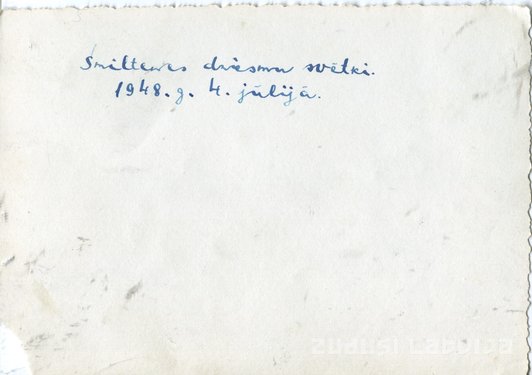 Smiltenes dziesmu svētki.
1948. g. 4. jūlijā.
zudusi Latvija